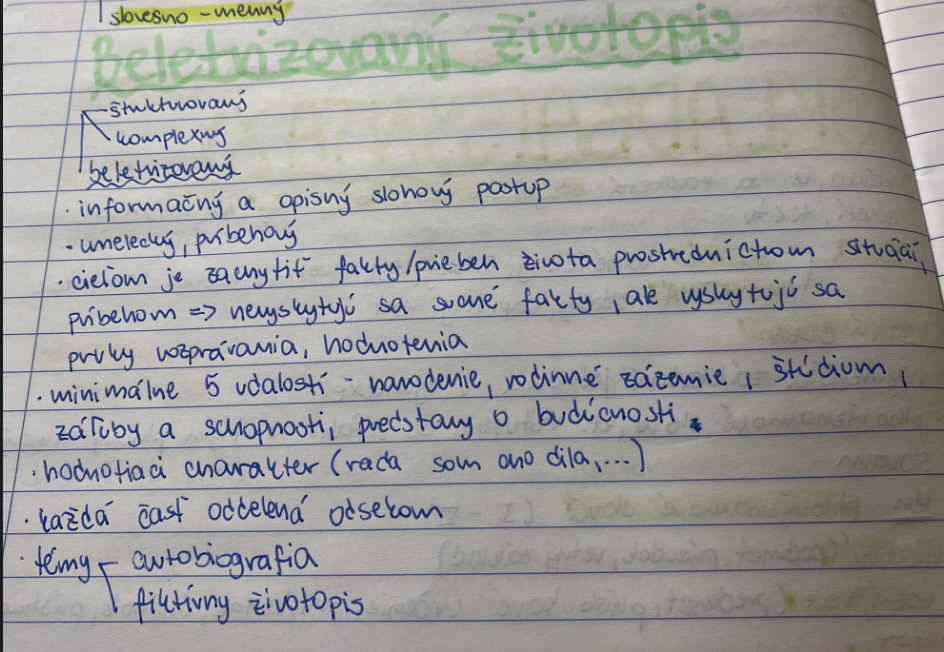 slovesno - menný
Beletrizovaný životopis
štruktúrovaný
komplexný
beletrizovaný
· informačný a opisný slohový postup
· umelecký, príbehový
· cieľom je zachytiť fakty/priebeh života prostredníctvom situácií,
príbehom => nevyskytujú sa suché fakty, ale vyskytujú sa
prvky rozprávania, hodnotenia
· minimálne 5 udalostí - narodenie, rodinné zázemie, štúdium,
záľuby a schopnosti, predstavy o budúcnosti
· hodnotiaci charakter (rada som chodila,...)
· každá časť oddelená odsekom
· témy autobiografia
fiktívny životopis